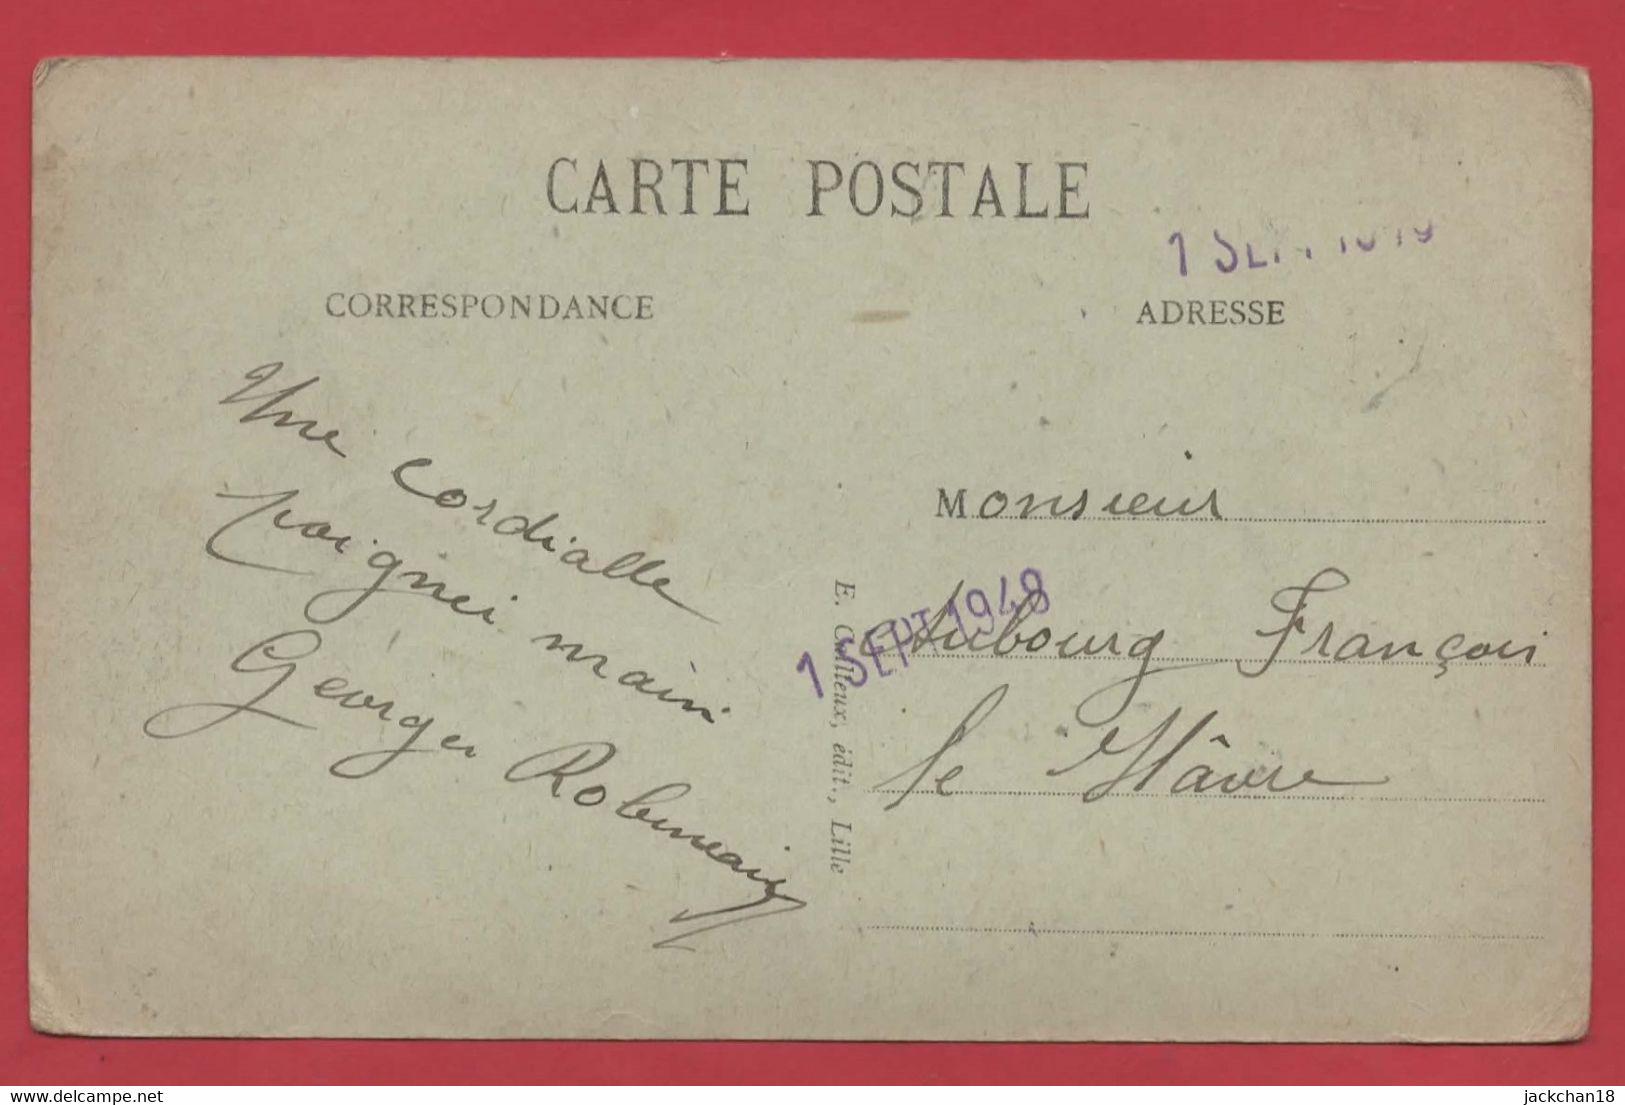 CARTE POSTALE
1 SEPT 1948
CORRESPONDANCE
ADRESSE
Une Cordialle
poignei main
Georges Robineau
Monsieur
Aubourg François
le Hâvre
1 SEPT 1948
E. Cailleux, édit., Lille
delcampe.net
jackchan18